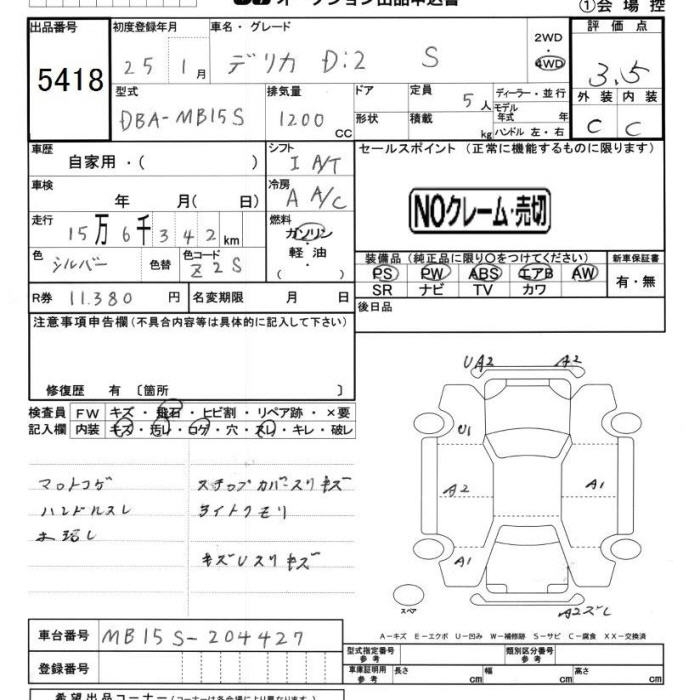 オークション出品申込書 ①会場控
出品番号 初度登録年月 車名・グレード 2WD・4WD 評価点
5418 25 1月 デリカ D:2 S 3.5
型式 排気量 ドア 定員 ディーラー・並行 外装 内装
DBA-MB15S 1200 CC 5人 モデル年式 年 C C
形状 積載 kg ハンドル 左・右
車歴 シフト セールスポイント (正常に機能するものに限ります)
自家用・( ) I A/T
車検 冷房
年 月( 日) A A/C NOクレーム・売切
走行 燃料
15万6千342km ガソリン
軽・油
色 色替 色コード 装備品 (純正品に限り〇をつけてください) 新車保証書
シルバー Z2S PS PW ABS エアB AW 有・無
( ) SR ナビ TV カワ
R券 11.380 円 名変期限 月 日 後日品
注意事項申告欄 (不具合内容等は具体的に記入して下さい)
修復歴 有 〔箇所 〕
検査員 FW キズ・飛石・ヒビ割・リペア跡・×要
記入欄 内装 キズ・汚レ・コゲ・穴・スレ・キレ・破レ
UA2 A2
U1
マットコゲ ステップカバースリキズ A2 A1
ハンドルスレ ライトクモリ
キズUスリキズ A1
スペア A2ズレ
A-キズ E-エクボ U-凹み W-補修跡 S-サビ C-腐食 XX-交換済
車台番号 MB15S-204427
型式指定番号 参考 類別区分番号 参考
登録番号 車庫証明用 参考 長さ cm 幅 cm 高さ cm
希望出品コーナー (コーナーは各会場により異なります)